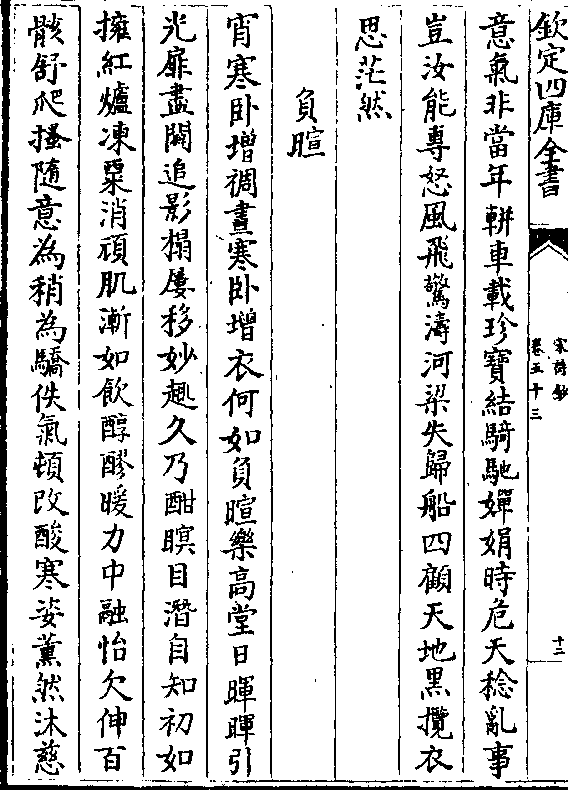 欽定四庫全書
宋詩鈔
卷五十三
十二
意氣非當年軿車載珍寶結騎馳嬋娟時危天稔亂事
豈汝能專怒風飛驚濤河梁失歸船四顧天地黑攬衣
思茫然
負暄
宵寒卧增裯晝寒卧增衣何如負暄樂高堂日暉暉引
光扉盡闢追影榻屢移妙趣久乃酣瞑目潛自知初如
擁紅爐凍粟消頑肌漸如飲醇醪暖力中融怡欠伸百
骸舒爬搔隨意為稍為驕佚氣頓改酸寒姿薰然沐慈